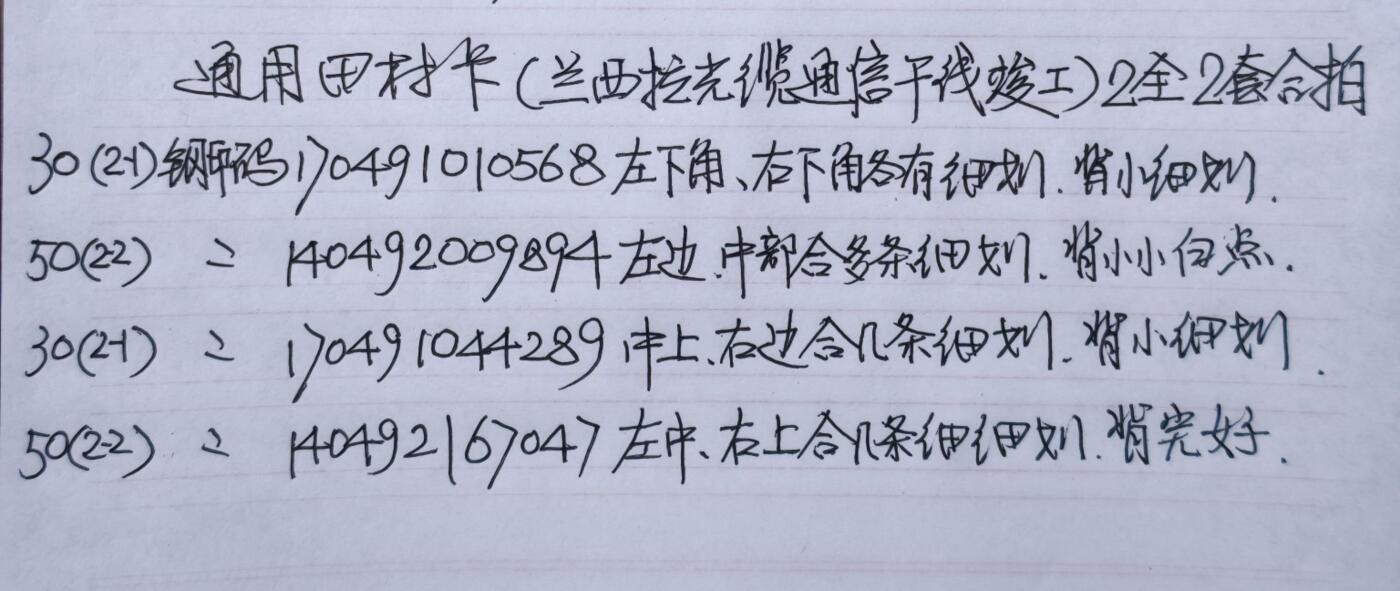 通用田村卡(兰西拉光缆通信干线竣工)2全2套合拍
30(2-1)钢印码170491010568左下角、右下角各有细划.背小细划.
50(2-2) 〃 140492009894左边.中部合多条细划.背小小白点.
30(2-1) 〃 170491044289中上.右边合几条细划.背小细划.
50(2-2) 〃 140492167047左中、右上合几条细细划.背完好.